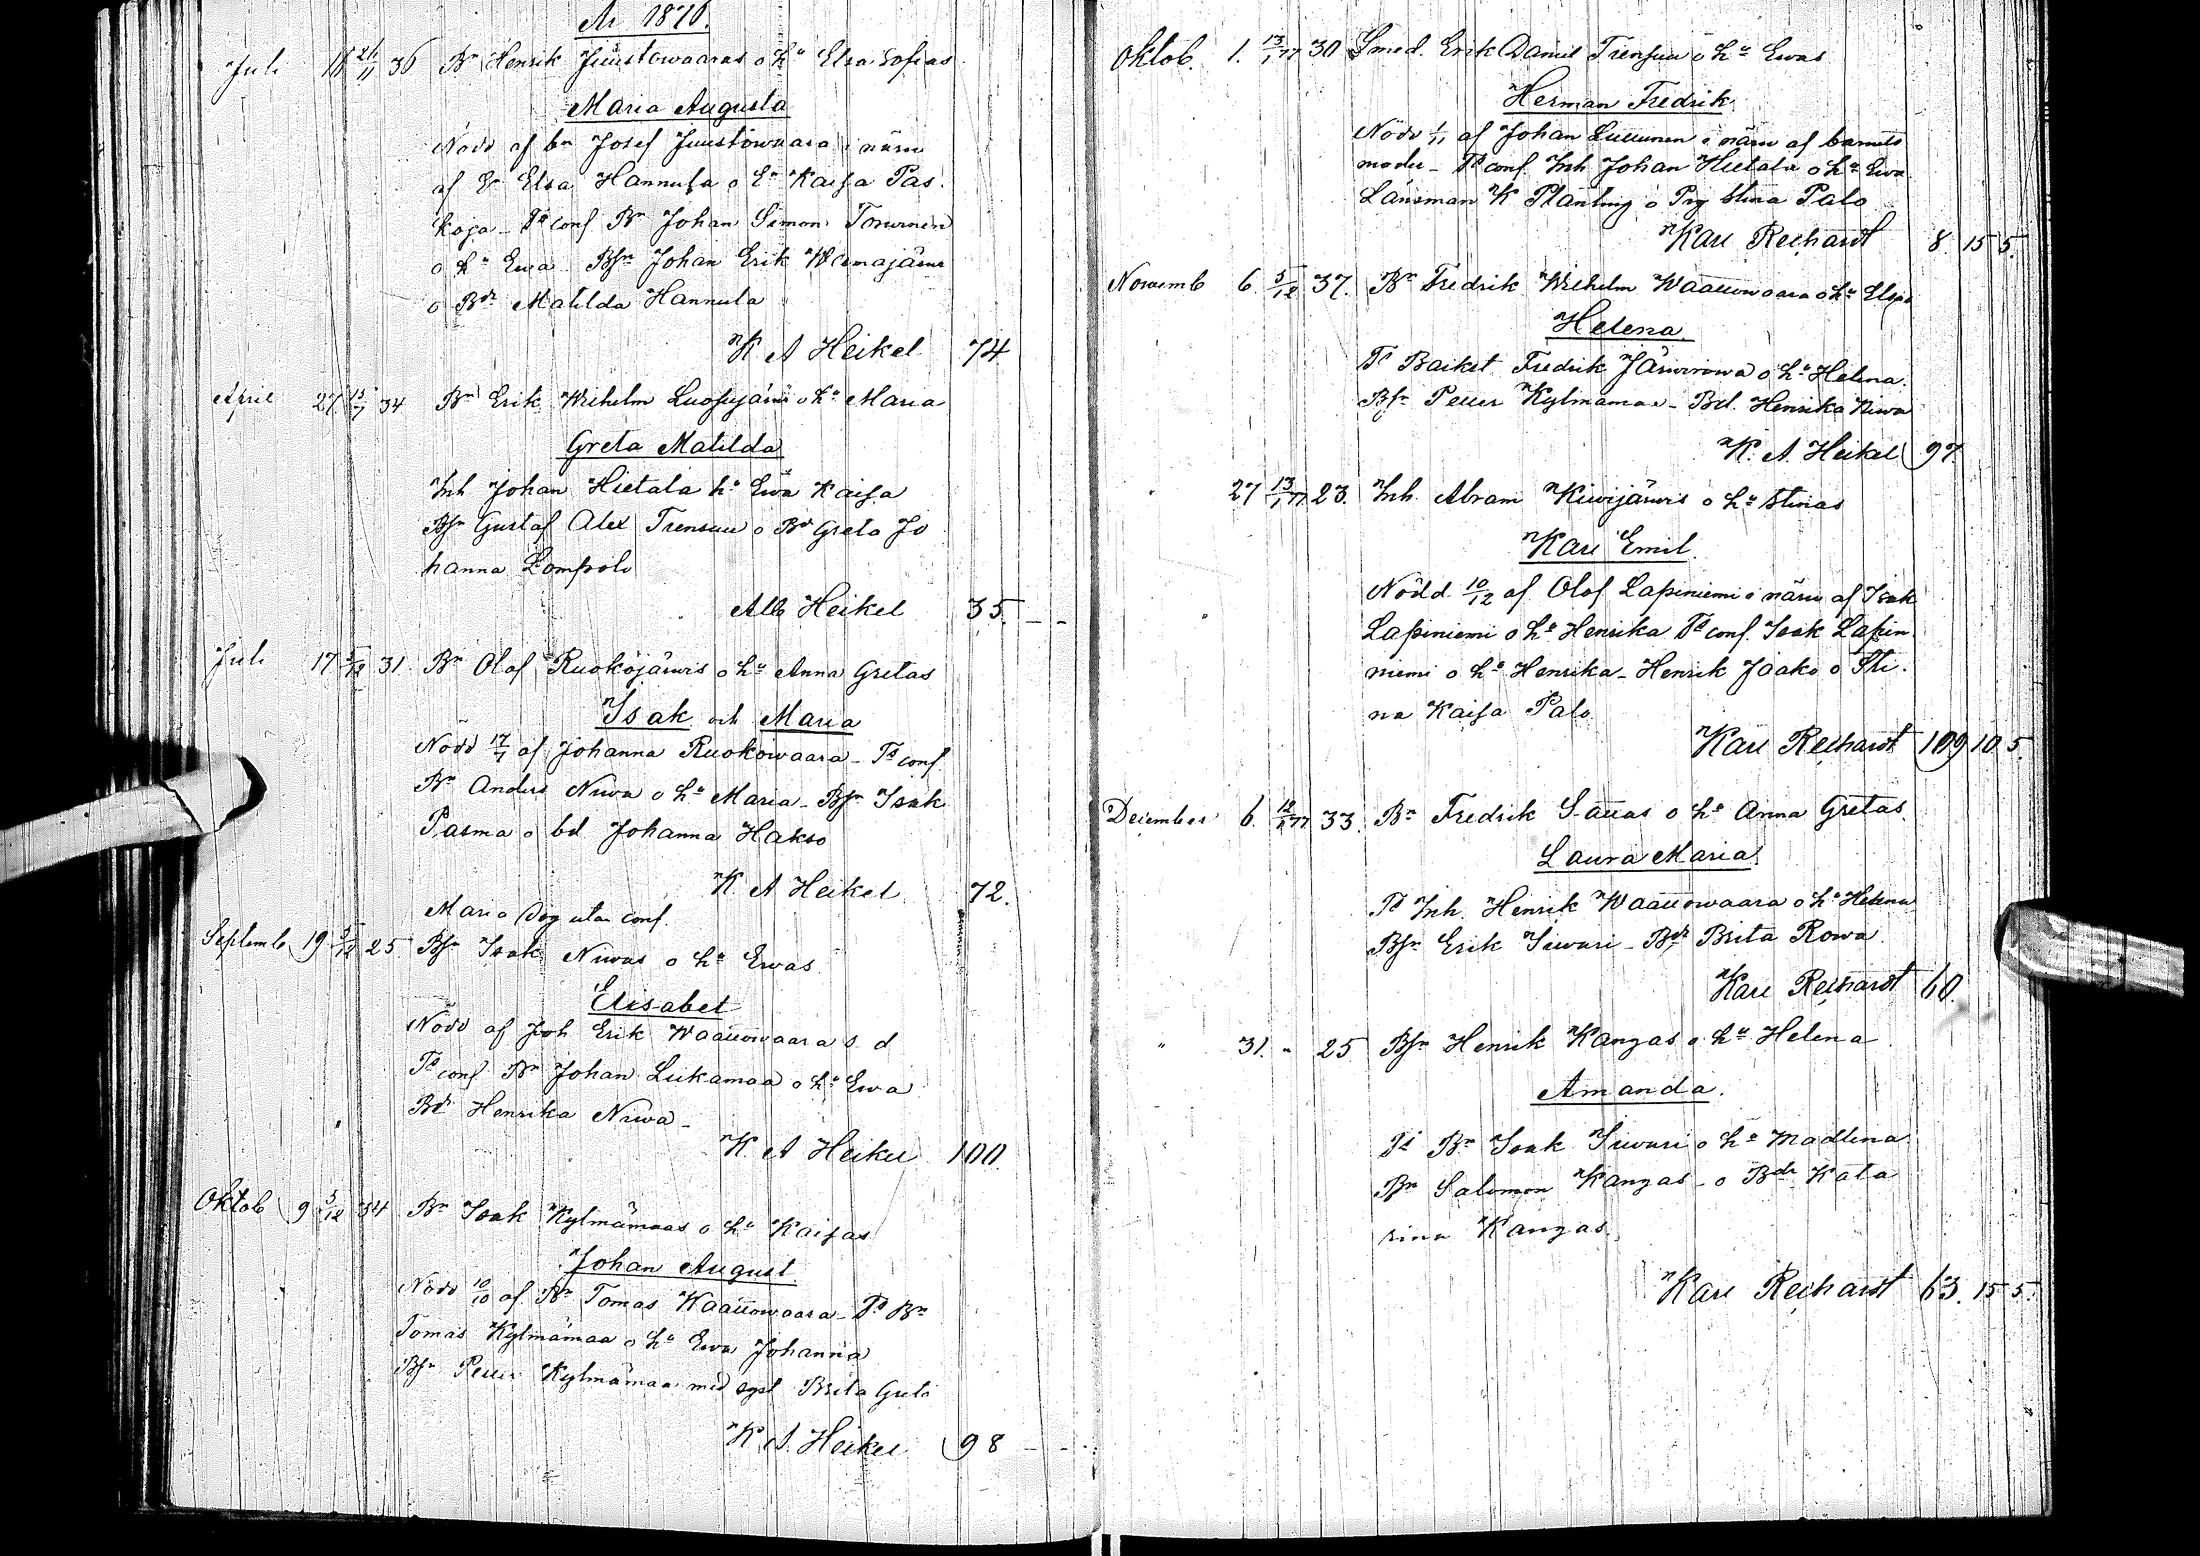 År 1876.
Juli 18 21/11 36 Bn Henrik Juustowaaras o ha Elsa Sofias
Maria Augusta
Nödd af bn Josef Juustowaara i närw
af Elsa Hannula o Kaisa Pas.
koja - Ts conf Bn Johan Simon Torninen
o ha Ewa Bsn Johan Erik
o Bdr Matilda Hannula
K A Heikel 74
April 27 15/7 34 Bn Erik Wilhelm Luosujärwi o ha Maria
Greta Matilda
Inh Johan Hietala ha Ewa Kaisa
Bsn Gustaf Alex Trensuu o Bdr Greta Jo
hanna Lompolo
Alb Heikel 35
Juli 17 5/12 31 Bn Olof Ruokojärwis o ha Anna Gretas
Isak och Maria
Nödd 17/7 af Johanna Ruokowaara - Ts conf.
Bn Anders Niwa o ha Maria - Bsn Isak
Pasma o bd Johanna Hakso
K A Heikel 72.
Maria dog utan conf.
Septemb 19 5/12 25 Bsn Isak Niwas o ha Ewas
Elisabet
Nödd af Joh Erik Waattowaara s. d
Ts conf Bn Johan Liikamaa o ha Ewa
Bdr Henrika Niwa -
K A Heikel 100
Oktob 9 5/12 34 Bn Isak Kylmämaas o ha Kaisas
Johan August
Nödd 10/10 af Bn Tomas Waattowaara - Ts Bn
Tomas Kylmämaa o ha Ewa Johanna
Bsn Petter Kylmämaa med syst Brita Greta
K A. Heikel 98
Oktob. 1. 13/1 77 30 Smed. Erik Daniel Trensuu o ha Ewas
Herman Fredrik
Nödd af Johan Luttunen i närw af barnets
moder - Ts conf. Inh Johan Hietala o ha Ewa
Länsman K Planting o Pig Stina Palo
Karl Rechardt 8. 15 5.
Novemb 6 5/12 37. Bn Fredrik Wilhelm Waattowaara o ha Elsas
Helena
Ts Backst Fredrik Järwirowa o ha Helena.
Bsn Petter Kylmämaa - Bd. Henrika Niwa
K. A. Heikel 97.
" 27 13/1 77 23. Inh. Abram Kiwijärwis o ha Stinas
Karl Emil
Nödd 10/12 af Olof Lapiniemi i närw af Isak
Lapiniemi o ha Henrika Ts conf. Isak Lapin
niemi o ha Henrika - Henrik Jaako o Sti-
na Kaisa Palo
Karl Rechardt 109 10 5
December 6. 33. Bn Fredrik Sattas o ha Anna Gretas
Laura Maria
Ts Inh. Henrik Waattowaara o ha Helena
Bsn Erik Siwari - Bdr Brita Rowa
Karl Rechardt 60.
" 31. " 25 Bsn Henrik Kangas o ha Helena
Amanda.
Ts Bn Isak Siwari o ha Madlena
Bn Salomon Kangas - o Bdr Kata
rina Kangas.
Karl Rechardt 63. 15 5.